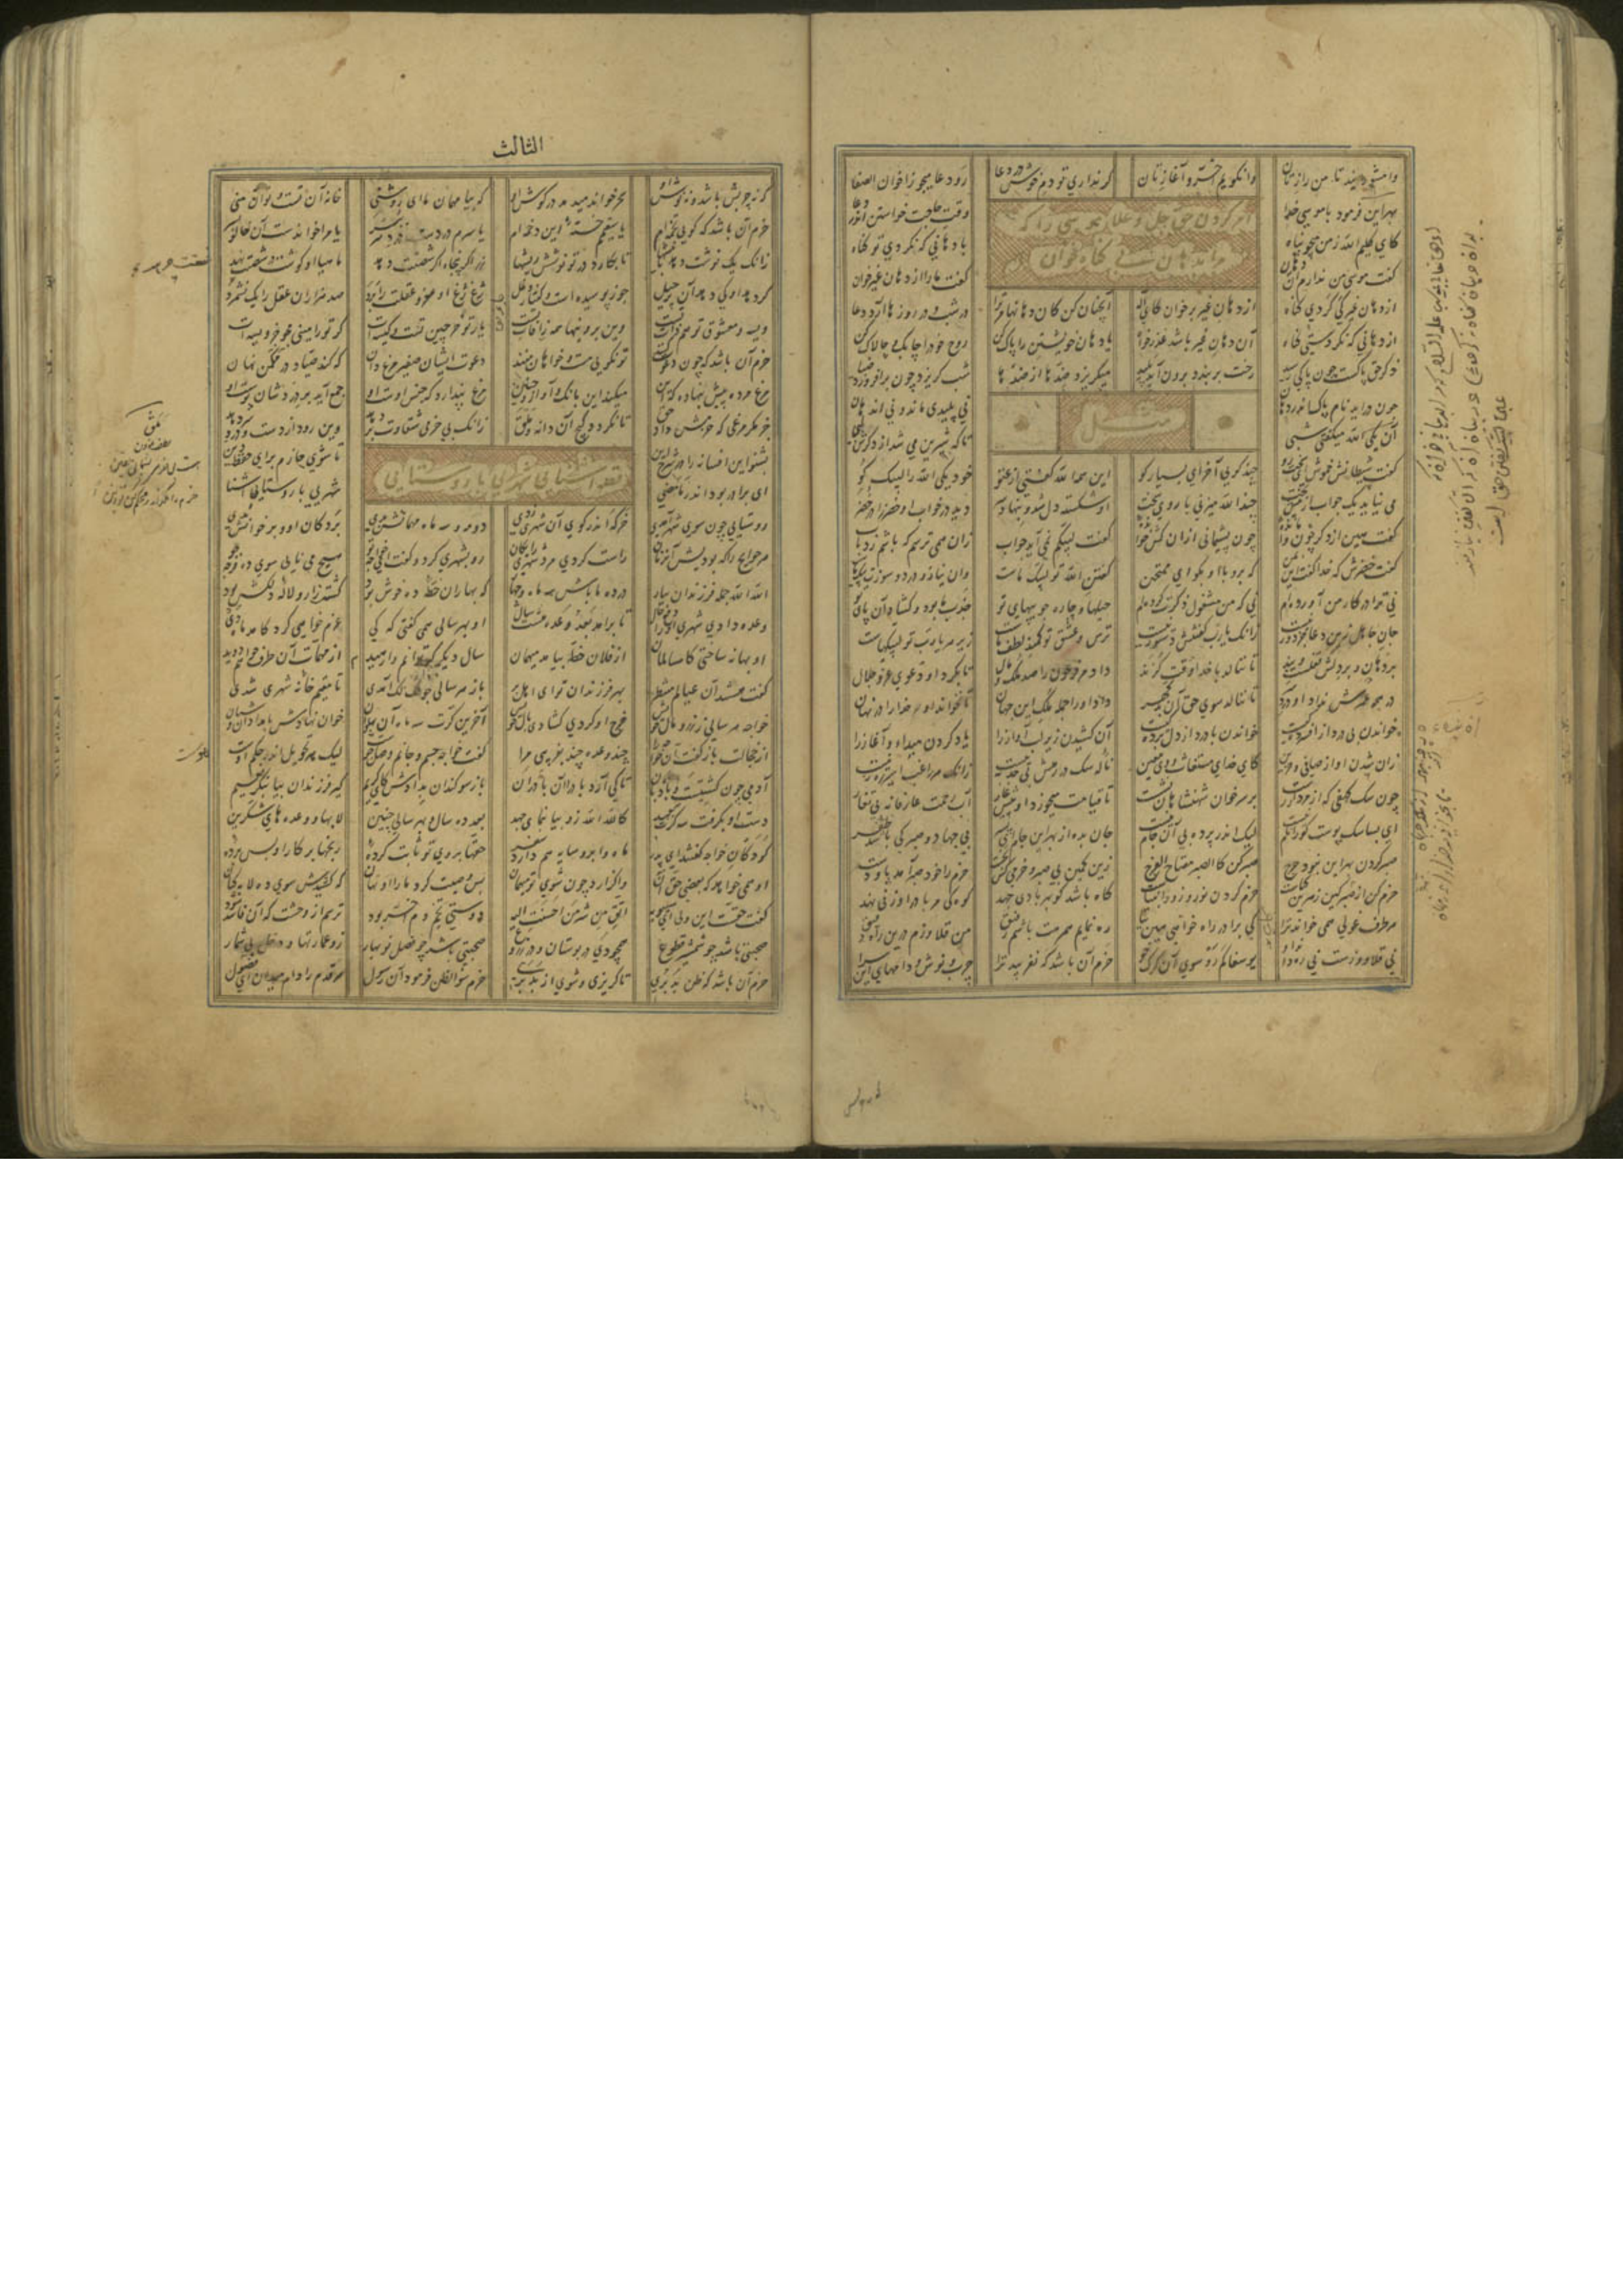 وامشورانید تا من رازتان وانگویم آخر و آغازتان گر نداری تو دم خوش در دعا رو دعا میجو ز اخوان الصفا
امر کردن حق جل و علا بموسی را که
مرا بدهان بی گناه خوان
بهر این فرمود با موسی خدا وقت حاجت خواستن اندر دعا
کای کلیم الله ز من میجو پناه با دهانی که نکردی تو گناه
گفت موسی من ندارم آن دهان گفت ما را از دهان غیر خوان
از دهان غیر کی کردی گناه از دهان غیر برخوان کای اله آنچنان کن کان دهانها مر ترا در شب و در روزها آرد دعا
از دهانی که نکردستی گناه آن دهان غیر باشد عذرخواه یا دهان خویشتن را پاک کن روح خود را چابک و چالاک کن
ذکر حق پاکست چون پاکی رسید رخت بربندد برون آید پلید میگریزد ضدها از ضدها شب گریزد چون برافروزد ضیا
چون درآید نام پاک اندر دهان نی پلیدی ماند و نی اندهان
مثل
آن یکی الله میگفتی شبی تا که شیرین می شد از ذکرش لبی
گفت شیطانش خموش ای سخت رو چند گویی آخر ای بسیار گو این همه الله گفتی از عتو خود یکی الله را لبیک کو
می نیاید یک جواب از پیش تخت چند الله میزنی با روی سخت او شکسته دل شد و بنهاد سر دید در خواب او خضر را در خضر
گفت هین از ذکر چون وامانده چون پشیمانی ازان کش خوانده گفت لبیکم نمی آید جواب زان همی ترسم که باشم رد باب
گفت خضرش که خدا گفت این بمن که برو با او بگو ای ممتحن گفتن الله تو لبیک ماست وان نیاز و درد و سوزت پیک ماست
نی ترا در کار من آورده ام نی که من مشغول ذکرت کرده ام حیلها و چاره جوییهای تو جذب ما بود و گشاد آن پای تو
جان جاهل زین دعا جز دور نیست زانک یا رب گفتنش دستور نیست ترس و عشق تو کمند لطف ماست زیر هر یا رب تو لبیکهاست
بر دهان و بر دلش قفلست و بند تا ننالد با خدا وقت گزند داد مر فرعون را صد ملک و مال تا بکرد او دعوی عز و جلال
در همه عمرش ندید او درد سر تا ننالد سوی حق آن بدگهر داد او را جمله ملک این جهان تا نخواند او مر خدا را در نهان
خواندن بی درد از افسردگیست خواندن با درد از دل بردگیست آن کشیدن زیر لب آواز را یاد کردن مبدا و آغاز را
زان شدن آواز صافی و حزین کای خدای مستغاث و ای معین ناله سگ در رهش بی جذبه نیست زانک هر راغب اسیر ره زنیست
چون سگ کهفی که از مردار رست بر سر خوان شهنشاهان نشست تا قیامت میخورد او پیش غار آب رحمت عارفانه بی تغار
ای بسا سگ پوست کو را نام نیست لیک اندر پرده بی آن جام نیست جان بده از بهر این جام ای پسر بی جهاد و صبر کی باشد ظفر
صبر کردن بهر این نبود حرج صبر کن کالصبر مفتاح الفرج زین کمین بی صبر و حزمی کس نجست حزم را خود صبر آمد پا و دست
حزم کن از خورد کین زهرین گیاست حزم کردن زور و نور انبیاست کاه باشد کو بهر بادی جهد کوه کی مر باد را وزنی نهد
هر طرف غولی همی خواند ترا کای برادر راه خواهی هین بیا ره نمایم همرهت باشم رفیق من قلاوزم درین راه دقیق
نی قلاووزست نی ره داند او یوسفا کم رو سوی آن گرگ خو حزم آن باشد که نفریبد ترا چرب و نوش و دامهای این سرا
الثالث
که نه چربش باشد و نه نوش او سحر خواند میدمد در گوش او که بیا مهمان ما ای روشنی خانه آن تست و تو آن منی
حزم آن باشد که گویی تخمه ام یا سقیم خسته این دخمه ام یا سرم دردست یا مرا خواندست آن خالو
زانک یک نوشت دهد با نیشها تا بکارد در تو نوشش ریشها زر اگر پنجاه اگر شصتت دهد ماهیا او گوشت در شستت دهد
گر دهد او کی دهد آن پر حیل جوز پوسیده است و گفتار دغل ژغ ژغ او مغز و عقلت را برد صد هزاران عقل را یک نشمرد
ویسه و معشوق تو هم ذات تست وین برونیها همه زافات تست
حزم آن باشد که چون دعوت کنند تو نگویی مست و خواهان منند دعوت ایشان صفیر مرغ دان که کند صیاد در مکمن نهان
مرغ مرده پیش بنهاده که این میکند این بانگ و آواز و حنین مرغ پندارد که جنس اوست او جمع آید بر دردشان پوست او
جز مگر مرغی که حزمش داد حق تا نگردد گیج آن دانه و ملق زانک بی حزمی شقاوت
بشنو این افسانه را در شرح این تا شوی حازم برای حفظ دین
قصه آشنایی شهری با روستایی
ای برادر بود اندر ما مضی شهریی با روستایی آشنا
روستایی چون سوی شهر آمدی خرگه اندر کوی آن شهری زدی دو مه و سه ماه مهمانش بدی بر دکان او و بر خوانش بدی
هر حوایج را که بودیش آن زمان راست کردی مرد شهری رایگان رو بشهری کرد و گفت ای خواجه تو هیچ می نایی سوی ده فرجه جو
الله الله جمله فرزندان بیار که بهاران خطه ده خوش بود کشت زار و لاله دلکش بود
وعده دادی شهری او را دفع حال تا برآمد بعد وعده هشت سال او بهر سالی همی گفتی که کی عزم خواهی کرد کامد ماه دی
او بهانه ساختی کامسالمان از فلان خطه بیامد میهمان سال دیگر گر توانم وارهید از مهمات آن طرف خواهم دوید
گفت هستند آن عیالم منتظر بهر فرزندان تو ای اهل بر باز هر سالی چو لکلک آمدی تا مقیم خانه شهری شدی
خواجه هر سالی ز زر و مال خویش خرج او کردی گشادی بال خویش آخرین کرت سه ماه آن پهلوان خوان نهادش بامدادان و شبان
از خجالت باز گفت آن خواجه را چند وعده چند بفریبی مرا گفت خواجه جسم و جانم وصل جوست لیک هر تحویل اندر حکم هوست
آدمی چون کشتیست و بادبان تا کی آرد باد را آن بادران باز سوگندان بدادش کای کریم گیر فرزندان بیا بنگر نعیم
دست او بگرفت سه کرت بعهد کالله الله زو بیا بنمای جهد بعد ده سال و بهر سالی چنین لابها و وعده های شکرین
کودکان خواجه گفتند ای پدر ماه و ابر و سایه هم دارد سفر حقها بر وی تو ثابت کرده رنجها در کار او بس برده
او همی خواهد که بعضی حق آن واگزارد چون شوی تو میهمان بس وصیت کرد ما را او نهان که کشیدش سوی ده لابه کنان
گفت حقست این ولی ای سیبویه اتق من شر من احسنت الیه دوستی تخم دم آخر بود ترسم از وحشت که آن فاسد شود
صحبتی باشد چو شمشیر قطوع همچو دی در بوستان و در زروع صحبتی باشد چو فصل نوبهار زو عمارتها و دخل بی شمار
حزم آن باشد که ظن بد بری تا گریزی و شوی از بد بری حزم سوء الظن فرمود آن رسول هر قدم را دام میدان ای فضول